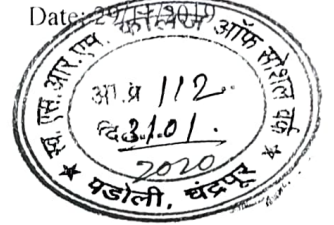 Date:
स्व. एस. आर. एम. कॉलेज ऑफ सोशल वर्क
आ.प्र 112.
दि 3.1.01.
2020
★ पडोली, चंद्रपूर ★